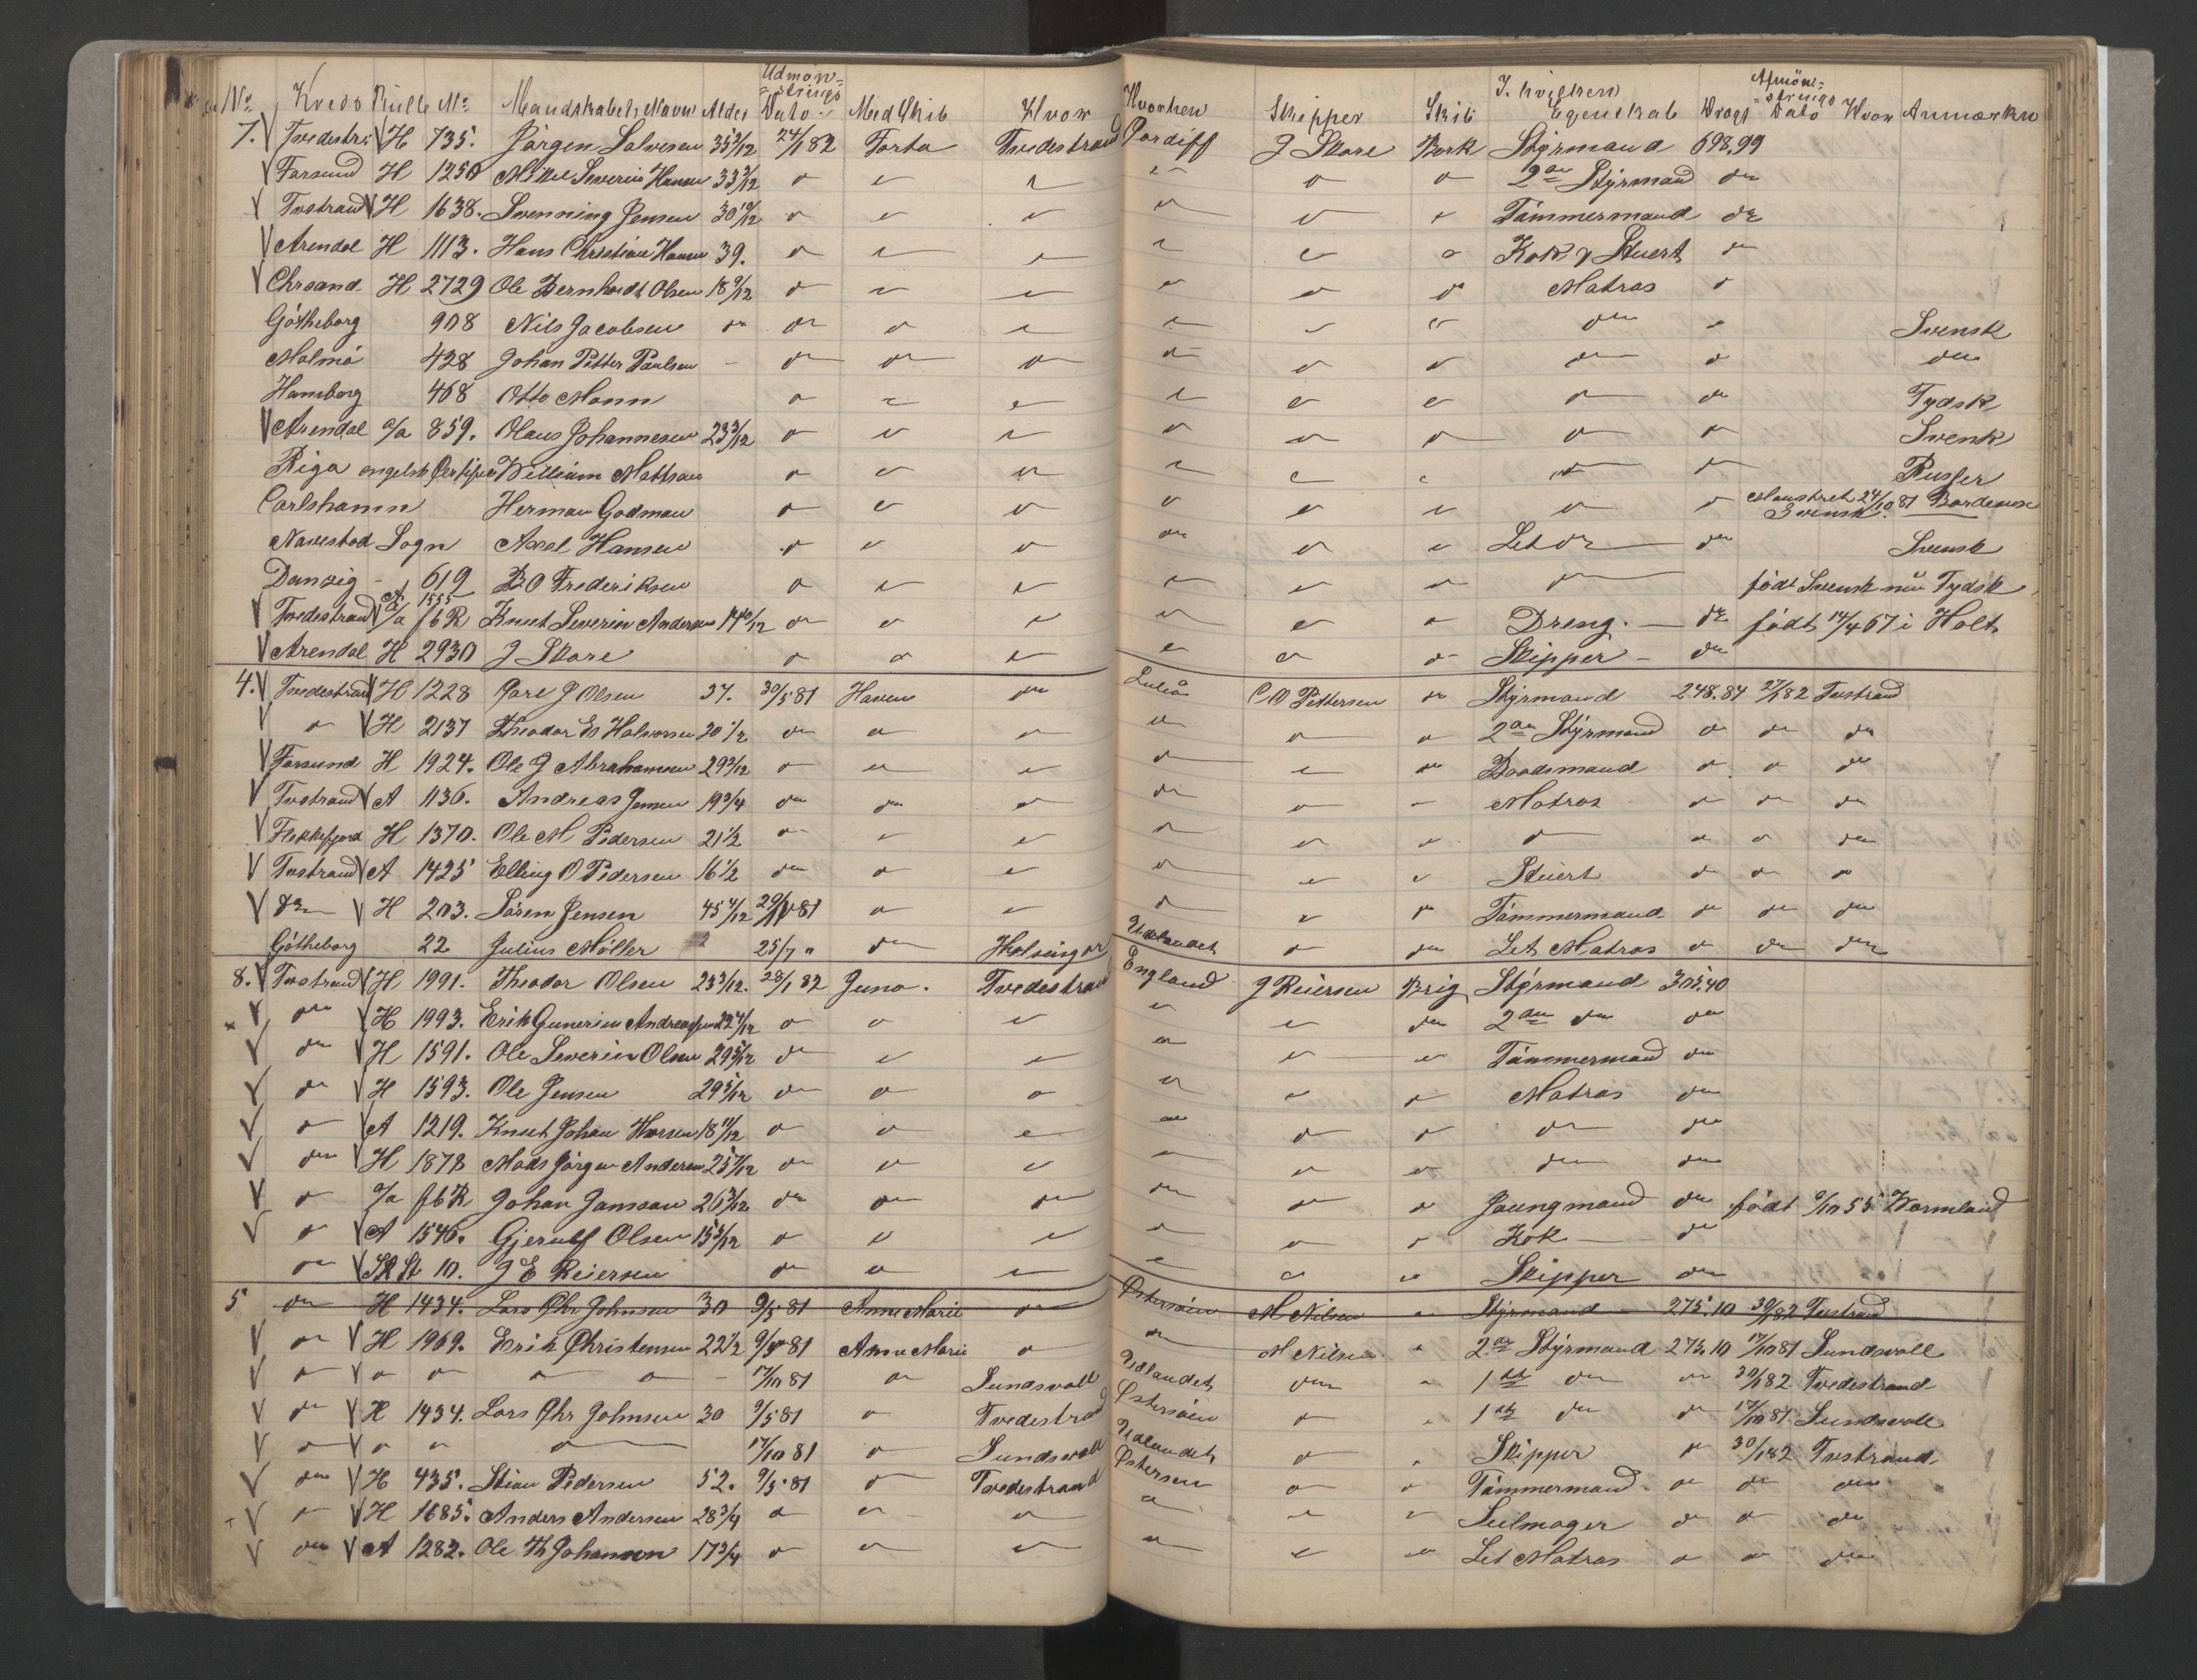 No Kreds Rulle No Mandskabets Navn Alder Udmønstrings Dato Med Skib Hvor Hvorhen Skipper Skib I hvilken Egenskab Drægt Afmønstrings Dato Hvor Anmærkn
7. Tvedestr. H 735. Jörgen Salvesen 35 24/1 82 Forta Tvedestrand Cardiff J Skore Bark Styrmand 698,99
Farsund H 1250 Mikal Severin Hansen 33 3/12 " " " " " " 2den Styrmand do
Tvstrand H 1638. Svenning Jensen 30 10/12 " " " " " " Tømmermand do
Arendal H 1113. Hans Christian Hansen 39. " " " " " " Kok & Stuert do
Chrsand. H 2729 Ole Bernhardt Olsen 18 9/12 " " " " " " Matros "
Götheborg 908 Nils Jacobsen do do " " " " " do " Svensk
Malmö 428 Johan Petter Paulsen - do do " " " " do " do
Hamborg 468 Otto Mann " " " " " " " do Tydsk
Arendal a/a 859. Olaus Johannesen 23 3/12 " " " " " " " " Svenk
Riga engelsk William Mattsau " " " " " " " " Russer
Carlshamn Herman Godman " " " " " " " " Mønstret 24/10 81 Bordeaux Svensk.
Navestad Sogn Axel Hansen " " " do " " Let do do Svensk
Danzig - 619 B O Frederiksen " " " " " " " født Svensk nu Tydsk
Tvedestrand a/a A 1555 fbR Knut Severin Andersen 14 10/12 " " " " " " Dreng. do født 14/4 67 i Holt
Arendal H 2930 J Skore " " " " " " Skipper do
4. Tvedestrand H 1228 Carl J Olsen 37. 30/5 81 Haven do Luleå C O Pettersen do Styrmand 248.84 27/1 82 Tvstrand
" H 2137 Theodor Halvorsen 20 1/2 do " " " " " 2den Styrmand " do do
Farsund H 1924. Ole J Abrahamsen 29 2/12 " " " " " do Baadsmand " " do
Tvstrand A 1136. Andreas Jensen 19 3/4 do do " do " " Matros " do do
Flekkefjord H 1370. Ole M Pedersen 21 1/2 " " " " " " " " " do
Tvstrand A 1425 Elling O Pedersen 16 1/2 do " " " " " Stuert " " "
do H 203. Søren Jensen 45 4/12 81 " " " " do Tømmermand do do do
Götheborg 22 Julius Möller 25/7 " do Helsingør Udlandet " do Let Matros " do do
8. Tvstrand H 1991. Theodor Olsen 23 3/12. 28/1 82 Juno. Tvedestrand England J Reiersen Brig Styrmand 305,40
do H 1993. Erik Gunerius Andreassen 22 4/12 " " " " " do 2den do do
do H 1591. Ole Severin Olsen 29 5/12 do " " " " " Tømmermand do
do H 1593. Ole Jensen 29 5/12 do " " " " " Matros do
" A 1219. Knut Johan 18 11/12 " " " " " " do do
do H 1878 Mads Jörgen Andersen 25 7/12 do " " " " " do do
" a/a fbR Johan Jansson 26 3/12 do do do do " " Joungmand do født 9/10 55 Wermland
" A 1546. Gjerulf Olsen 15 3/12 " " " " " " Kok do
do Sk St 10. J E Reiersen do " " " " " Skipper do
5 do H 1434. Lars Chr Johnsen 30 9/5 81 Anne Marie do Østersöen M Nilsen " Styrmand 275.10 30/1 82 Tvstrand
do H 1969. Erik Christensen 22 1/2 9/5 81 Anne Marie " do M Nilsen " 2den Styrmand 275.10 17/10 81 Sundsvall
" " " " " - 17/10 81 do Sundsvall Udlandet do " 1ste do do 30/1 82 Tvedestrand
do H 1434. Lars Chr Johnsen 30 9/5 81 " Tvedestrand Østersøen " " 1ste do do 17/10 81 Sundsvall
" " " " 17/10 81 " Sundsvall Udlandet " " Skipper " 30/1 82 Tvstrand
do H 435. Stian Pedersen 52. 9/5 81 " Tvedestrand Østersøen " " Tømmermand " do do
" H 1685. Anders Andersen 28 3/4 " " " " " " Seilmager do " do
do A 1282. Ole Th Johansen 17 3/4 " " " " " " Let Matros " " do